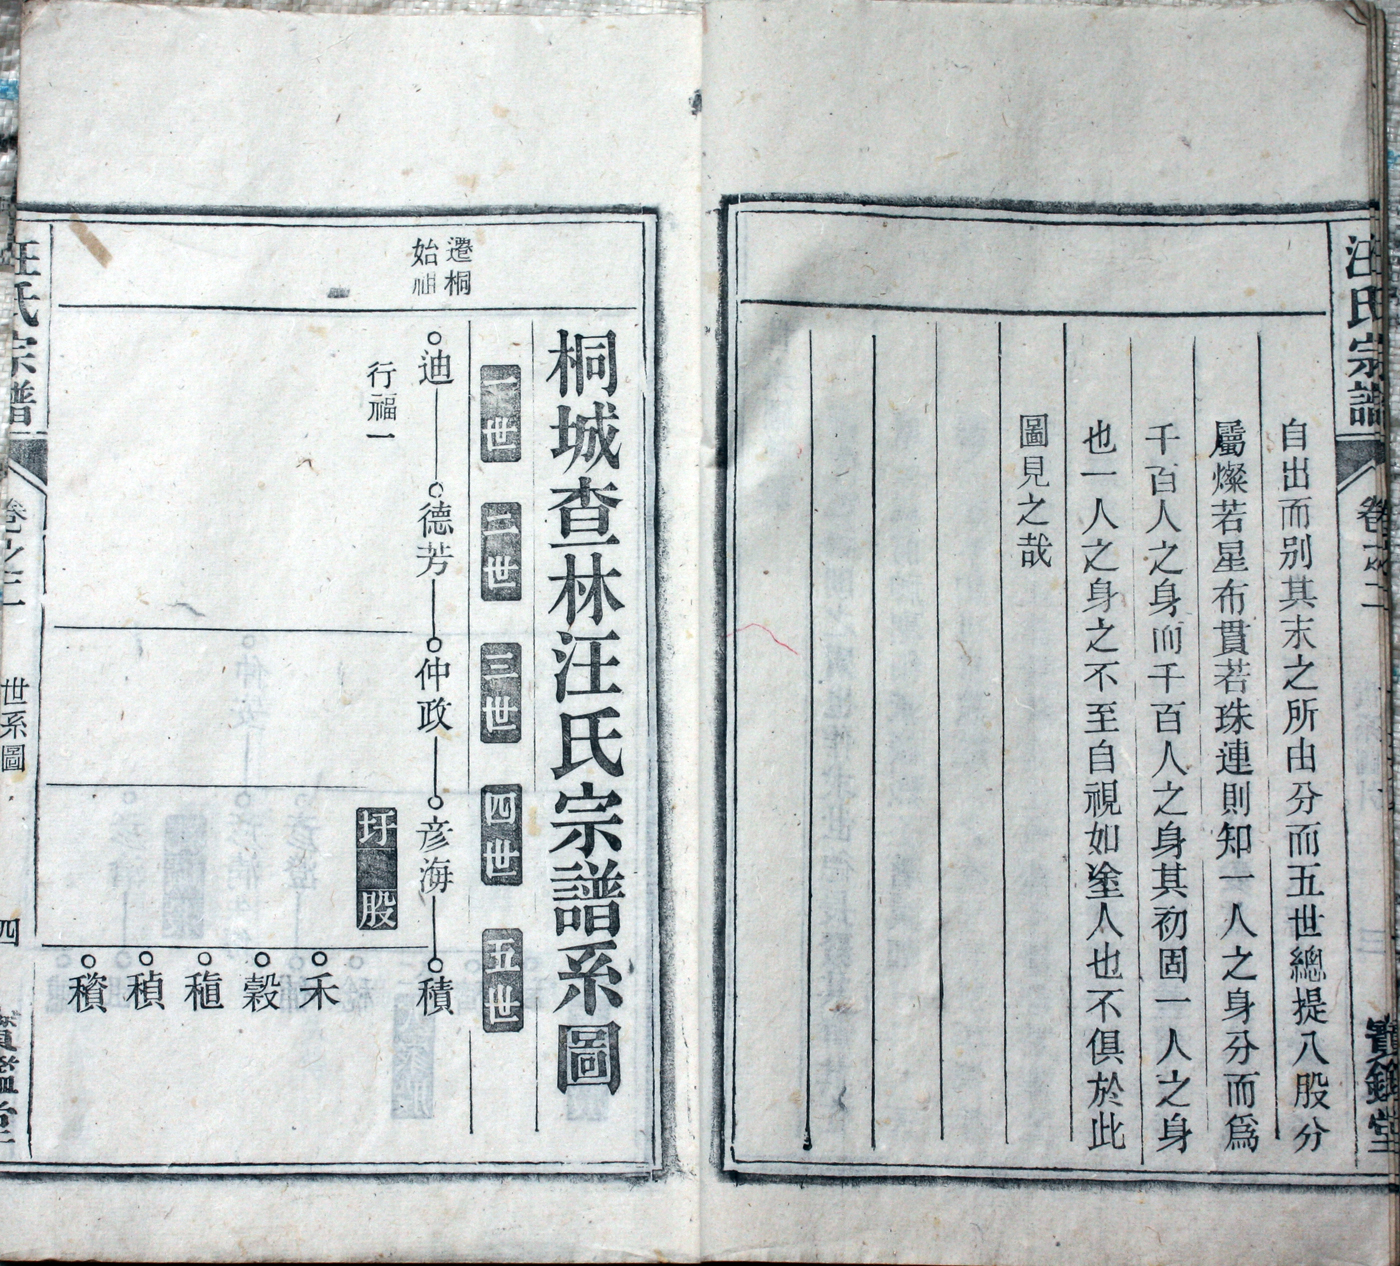 汪氏宗譜
卷之二
寶鑑堂
自出而别其末之所由分而五世總提八股分
屬燦若星布貫若珠連則知一人之身分而爲
千百人之身而千百人之身其初固一人之身
也一人之身之不至自視如塗人也不俱於此
圖見之哉
桐城查林汪氏宗譜系圖
一世
二世
三世
四世
五世
遷桐
始祖
迪
德芳
仲政
彦海
積
行福一
圩
股
禾
穀
禎
汪氏宗譜
世系圖
四
寶鑑堂